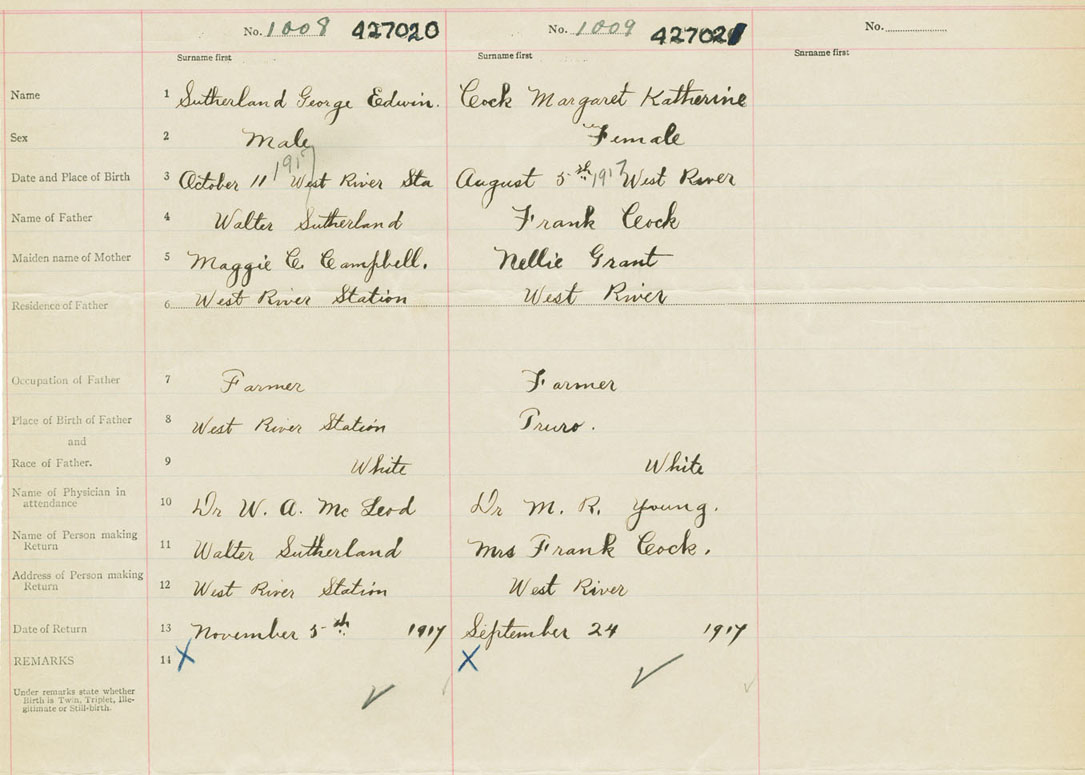 No. 1008 427020 No. 1009 427021 No.
Surname first Surname first Surname first
Name 1 Sutherland George Edwin. Cock Margaret Katherine
Sex 2 Male Female
1917
Date and Place of Birth 3 October 11 West River Sta August 5th 1917 West River
Name of Father 4 Walter Sutherland Frank Cock
Maiden name of Mother 5 Maggie C. Campbell. Nellie Grant
Residence of Father 6 West River Station West River
Occupation of Father 7 Farmer Farmer
Place of Birth of Father 8 West River Station Truro.
and
Race of Father. 9 White White
Name of Physician in
attendance 10 Dr W. A. McLeod Dr M. R. Young.
Name of Person making
Return 11 Walter Sutherland Mrs Frank Cock.
Address of Person making
Return 12 West River Station West River
Date of Return 13 November 5th 1917 September 24 1917
REMARKS 14 X X
Under remarks state whether
Birth is Twin, Triplet, Ille-
gitimate or Still-birth.